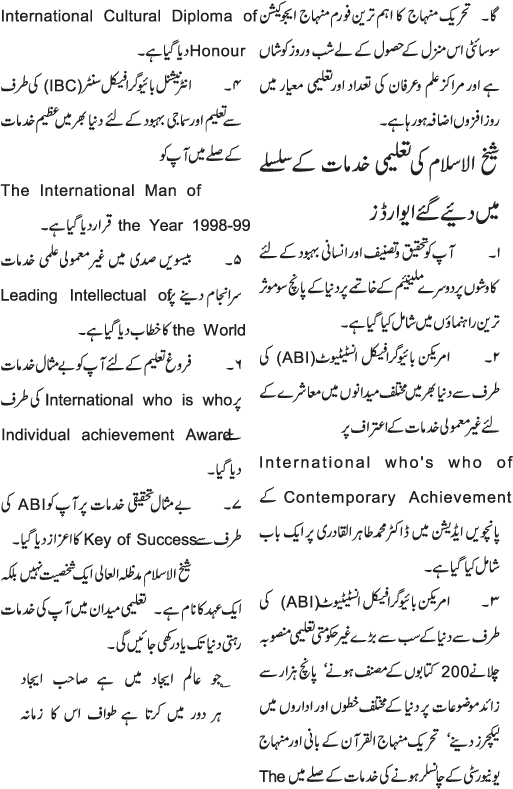 گا۔ تحریک منہاج کا اہم ترین فورم منہاج ایجوکیشن
سوسائٹی اس منزل کے حصول کے لیے شب و روز کوشاں
ہے اور مراکز علم و عرفان کی تعداد اور تعلیمی معیار میں
روز افزوں اضافہ ہو رہا ہے۔
شیخ الاسلام کی تعلیمی خدمات کے سلسلے
میں دیئے گئے ایوارڈز
۱۔ آپ کو تحقیق و تصنیف اور انسانی بہبود کے لئے
کاوشوں پر دوسرے ملینیئم کے خاتمے پر دنیا کے پانچ سو موثر
ترین راہنماؤں میں شامل کیا گیا ہے۔
۲۔ امریکن بائیوگرافیکل انسٹیٹیوٹ (ABI) کی
طرف سے دنیا بھر میں مختلف میدانوں میں معاشرے کے
لئے غیر معمولی خدمات کے اعتراف پر
International who's who of
Contemporary Achievement کے
پانچویں ایڈیشن میں ڈاکٹر محمد طاہر القادری پر ایک باب
شامل کیا گیا ہے۔
۳۔ امریکن بائیوگرافیکل انسٹیٹیوٹ (ABI) کی
طرف سے دنیا کے سب سے بڑے غیر حکومتی تعلیمی منصوبہ
چلانے 200 کتابوں کے مصنف ہونے‘ پانچ ہزار سے
زائد موضوعات پر دنیا کے مختلف خطوں اور اداروں میں
لیکچرز دینے‘ تحریک منہاج القرآن کے بانی اور منہاج
یونیورسٹی کے چانسلر ہونے کی خدمات کے صلے میں The
International Cultural Diploma of
Honour دیا گیا ہے۔
۴۔ انٹرنیشنل بائیوگرافیکل سنٹر (IBC) کی طرف
سے تعلیم اور سماجی بہبود کے لئے دنیا بھر میں عظیم خدمات
کے صلے میں آپ کو
The International Man of
the Year 1998-99 قرار دیا گیا ہے۔
۵۔ بیسویں صدی میں غیر معمولی علمی خدمات
سرانجام دینے پر Leading Intellectual of
the World کا خطاب دیا گیا ہے۔
۶۔ فروغ تعلیم کے لئے آپ کو بے مثال خدمات
پر International who is who کی طرف
سے Individual achievement Award
دیا گیا۔
۷۔ بے مثال تحقیقی خدمات پر آپ کو ABI کی
طرف سے Key of Success کا اعزاز دیا گیا۔
شیخ الاسلام مدظلہ العالی ایک شخصیت نہیں بلکہ
ایک عہد کا نام ہے۔ تعلیمی میدان میں آپ کی خدمات
رہتی دنیا تک یاد رکھی جائیں گی۔
؎ جو عالم ایجاد میں ہے صاحب ایجاد
ہر دور میں کرتا ہے طواف اس کا زمانہ